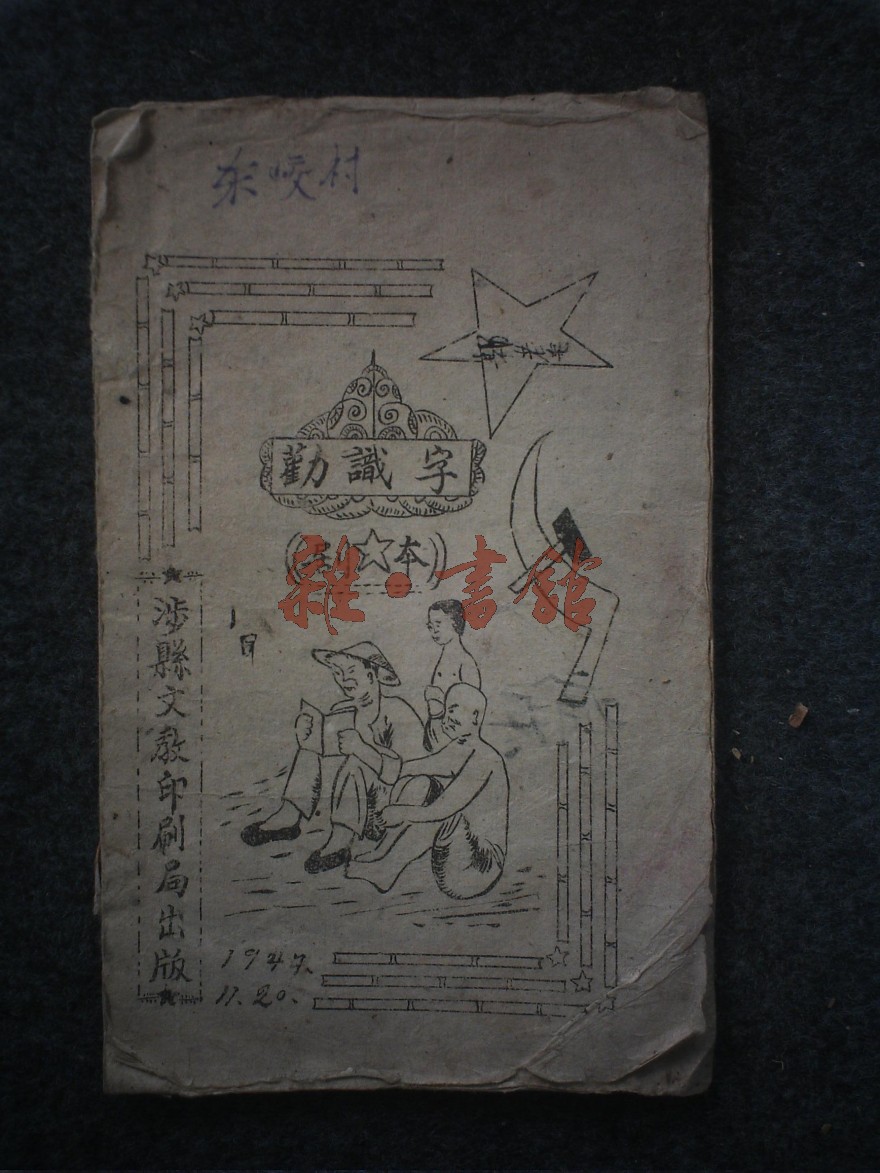 东峧村
勸識字
本
雜·書館
涉縣文教印刷局出版
1947.
11.20.